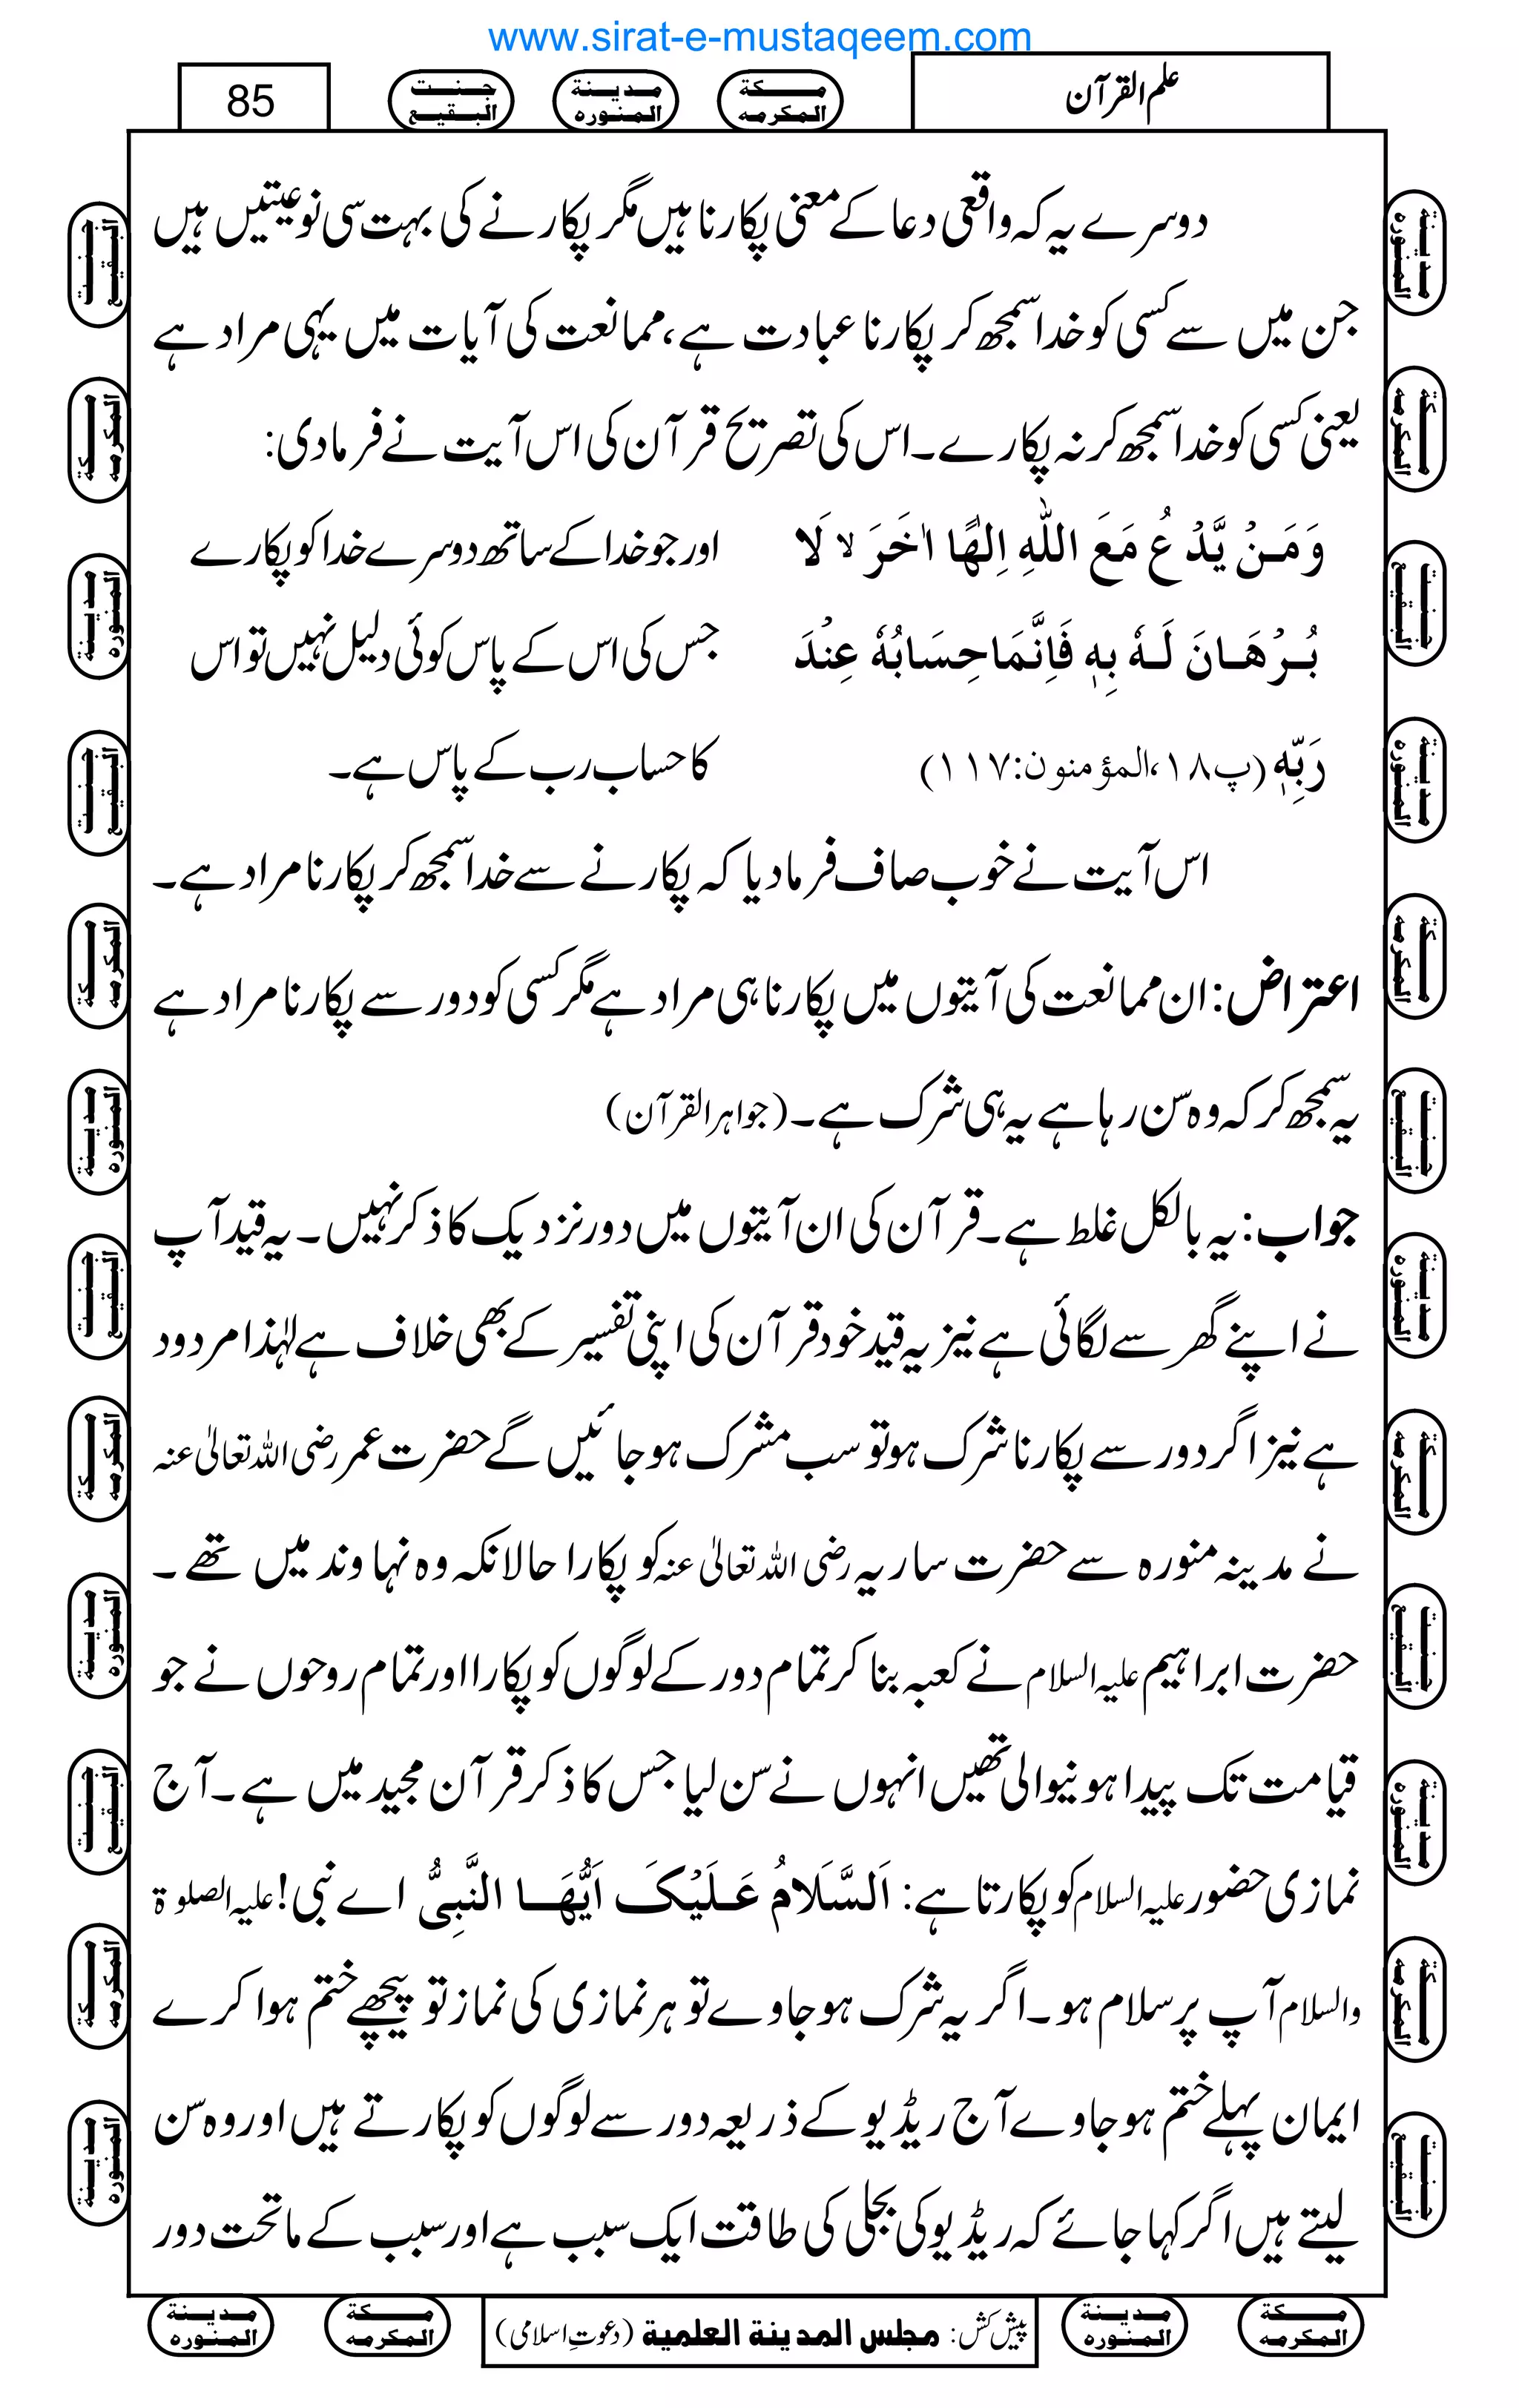 www.sirat-e-mustaqeem.com
علم القرآن
مکة المکرمه
مدینة المنوره
جنت البقیع
85
دوسرے یہ کہ واقعی دعا کے معنی پکارنا ہیں مگر پکارنے کی بہت سی نوعیتیں ہیں
جن میں سے کسی کو خدا سمجھ کر پکارنا عبادت ہے، ممانعت کی آیات میں یہی مراد ہے
یعنی کسی کو خدا سمجھ کر نہ پکارے۔ اس کی تصریح قرآن کی اس آیت نے فرمادی:
وَمَنْ یَّدْعُ مَعَ اللّٰهِ اِلٰهًا اٰخَرَ ۙ لَا
اور جو خدا کے ساتھ دوسرے خدا کو پکارے
بُرْهَانَ لَهٗ بِهٖ فَاِنَّمَا حِسَابُهٗ عِنْدَ
جس کی اس کے پاس کوئی دلیل نہیں تو اس
رَبِّهٖ (پ۱۸،المؤمنون:۱۱۷)
کا حساب رب کے پاس ہے۔
اس آیت نے خوب صاف فرما دیا کہ پکارنے سے خدا سمجھ کر پکارنا مراد ہے۔
اعتراض: ان ممانعت کی آیتوں میں پکارنا ہی مراد ہے مگر کسی کو دور سے پکارنا مراد ہے
یہ سمجھ کر کہ وہ سن رہا ہے یہ ہی شرک ہے۔ (جواہر القرآن)
جواب: یہ بالکل غلط ہے۔ قرآن کی ان آیتوں میں دور نزدیک کا ذکر نہیں۔ یہ قید آپ
نے اپنے گھر سے لگائی ہے نیز یہ قید خود قرآن کی اپنی تفسیر کے بھی خلاف ہے لہٰذا مردود
ہے نیز اگر دور سے پکارنا شرک ہو تو سب مشرک ہو جائیں گے حضرت عمر رضی اللہ تعالٰی عنہ
نے مدینہ منورہ سے حضرت ساریہ رضی اللہ تعالٰی عنہ کو پکارا حالانکہ وہ نہاوند میں تھے۔
حضرت ابراہیم علیہ السلام نے کعبہ بنا کر تمام دور کے لوگوں کو پکارا اور تمام روحوں نے جو
قیامت تک پیدا ہونیوالی تھیں انہوں نے سن لیا جس کا ذکر قرآن مجید میں ہے۔ آج
نمازی حضور علیہ السلام کو پکارتا ہے: اَلسَّلَامُ عَلَیْکَ اَیُّهَا النَّبِیُّ اے نبی! علیہ الصلوۃ
والسلام آپ پر سلام ہو۔ اگر یہ شرک ہو جاوے تو ہر نمازی کی نماز تو پیچھے ختم ہوا کرے
ایمان پہلے ختم ہو جاوے آج ریڈیو کے ذریعہ دور سے لوگوں کو پکارتے ہیں اور وہ سن
لیتے ہیں اگر کہا جائے کہ ریڈیو کی بجلی کی طاقت ایک سبب ہے اور سبب کے ماتحت دور
پیش کش: مجلس المدینة العلمیة (دعوتِ اسلامی)